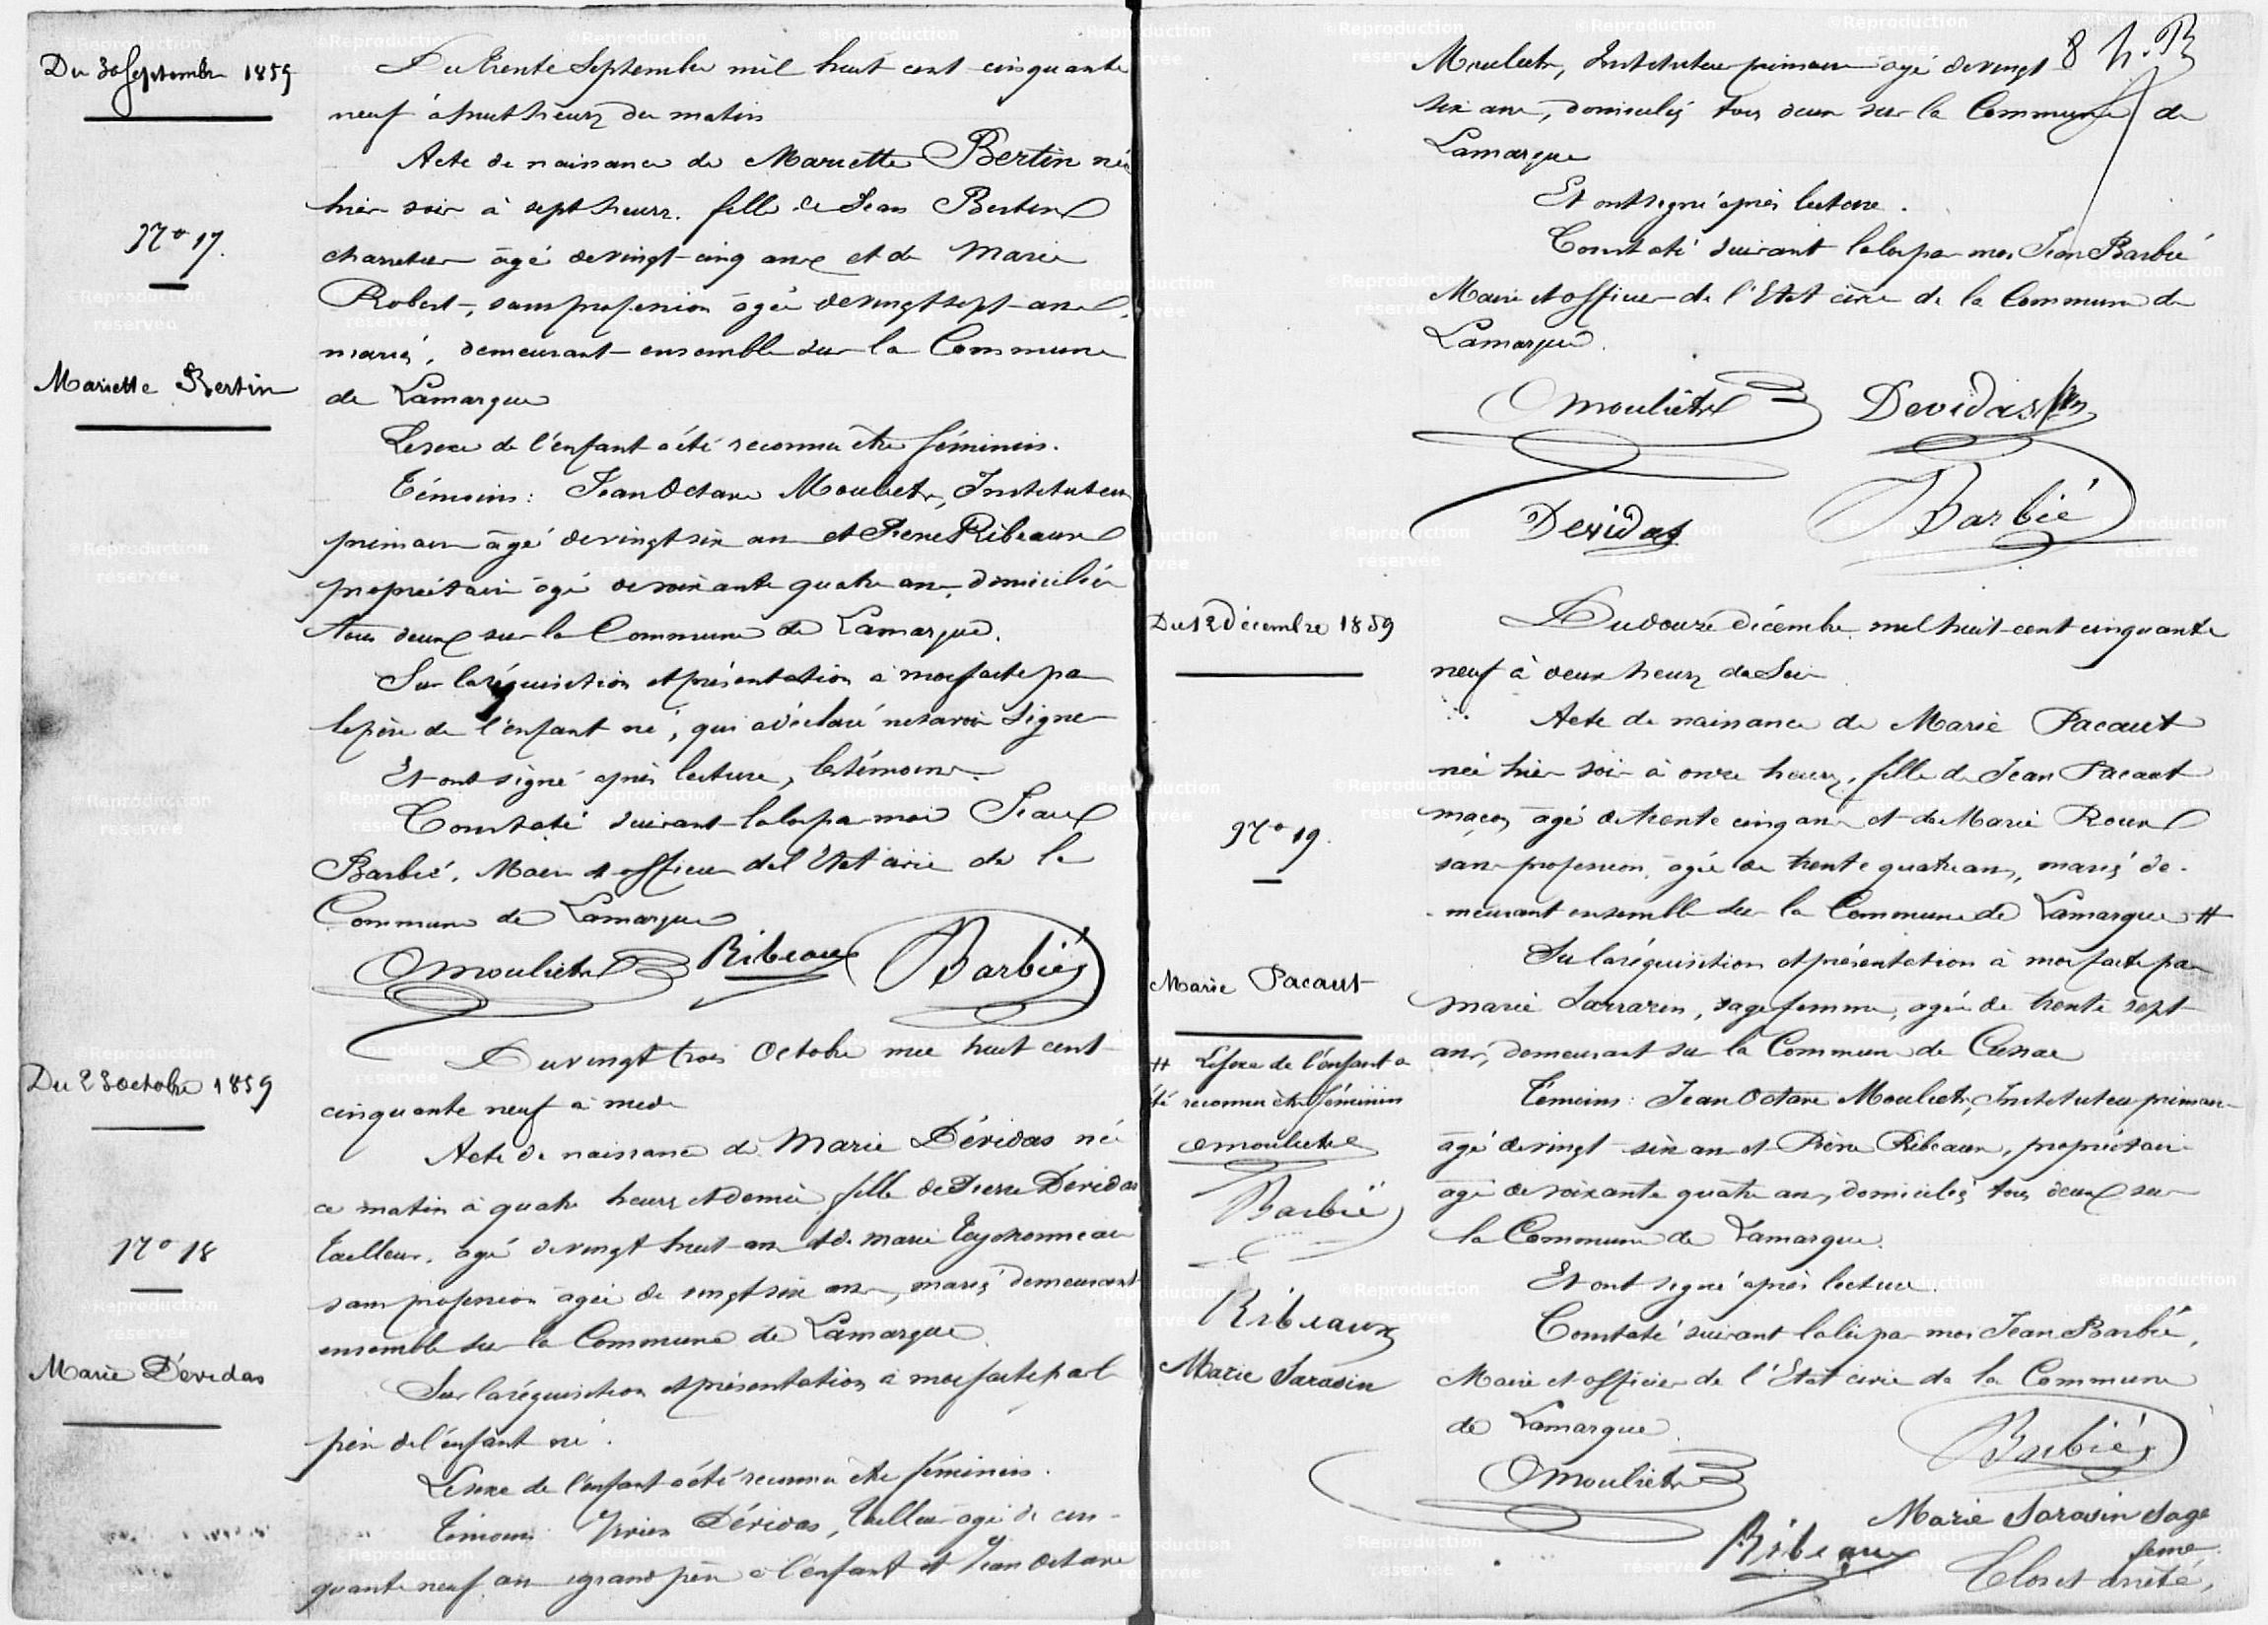 Du 30 Septembre 1859
N° 17.
Mariette Bertin
Du trente Septembre mil huit cent cinquante
neuf à huit heures du matin
Acte de naissance de Mariette Bertin née
hier soir à sept heures. fille de Jean Bertin
charretier âgé de vingt-cinq ans et de Marie
Robert, sans profession âgée de vingt sept ans,
mariés, demeurant ensemble sur la Commune
de Lamarque
Le sexe de l'enfant a été reconnu être féminin.
Témoins: Jean Octave Moulietr, Instituteur
primaire âgé de vingt six ans et Pierre Ribeaux
propriétaire âgé de soixante quatre ans, domiciliés
tous deux sur la Commune de Lamarque.
Sur la réquisition et présentation à moi faite par
le père de l'enfant né, qui a déclaré ne savoir signer
Et ont signé après lecture, les témoins.
Constaté suivant la loi par moi Jean
Barbié, Maire et officier de l'Etat civil de la
Commune de Lamarque
Omoulietr Ribeaux Barbié
Du 23 octobre 1859
N° 18
Marie Dévidas
Du vingt trois Octobre mil huit cent
cinquante neuf à midi
Acte de naissance de Marie Dévidas née
ce matin à quatre heures et demie fille de Pierre Dévidas
Tailleur, âgé de vingt huit ans et de Marie
sans profession âgée de vingt six ans, mariés demeurant
ensemble sur la Commune de Lamarque
Sur la réquisition et présentation à moi faite par le
père de l'enfant né.
Le sexe de l'enfant a été reconnu être féminin.
Témoins: Dévidas, Tailleur âgé de cin-
quante neuf ans grand père à l'enfant et Jean Octave
8 h. B
Moulietr, Instituteur primaire âgé de vingt
six ans, domiciliés tous deux sur la Commune de
Lamarque
Et ont signé après lecture.
Constaté suivant la loi par moi Jean Barbié
Maire et officier de l'Etat civil de la Commune de
Lamarque.
Omoulietr Devidas
Devidas Barbié
Du 12 décembre 1859
N° 19.
Marie Pacaut
# Le sexe de l'enfant a
été reconnu être féminin
Omoulietr
Barbié
Ribeaux
Marie Sarasin
Du douze décembre mil huit cent cinquante
neuf à deux heures du Soir
Acte de naissance de Marie Pacaut
née hier soir à onze heures, fille de Jean Pacaut
maçon âgé de trente cinq ans et de Marie Roux
sans profession, âgée de trente quatre ans, mariés de-
meurant ensemble sur la Commune de Lamarque #
Sur la réquisition et présentation à moi faite par
Marie Sarrazin, sage femme, âgée de trente sept
ans, demeurant sur la Commune de Cussac
Témoins: Jean Octave Moulietr, Instituteur primaire
âgé de vingt six ans et Pierre Ribeaux, propriétaire
âgé de soixante quatre ans, domiciliés tous deux sur
la Commune de Lamarque.
Et ont signé après lecture.
Constaté suivant la loi par moi Jean Barbié,
Maire et officier de l'Etat civil de la Commune
de Lamarque.
Barbié
Omoulietr
Marie Sarasin sage
feme
Ribeaux
Clos et arrêté,